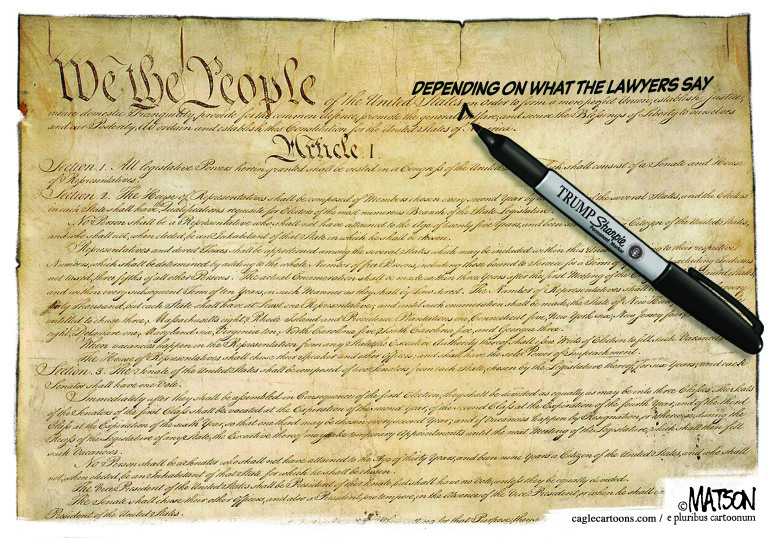 DEPENDING ON WHAT THE LAWYERS SAY
We the People of the United States, in Order to form a more perfect Union, establish Justice,
insure domestic Tranquility, provide for the common defence, promote the general Welfare, and secure the Blessings of Liberty to ourselves
and our Posterity, do ordain and establish this Constitution for the United States of America.
Article I.
Section 1. All legislative Powers herein granted shall be vested in a Congress of the United shall consist of a Senate and House
of Representatives.
Section 2. The House of Representatives shall be composed of Members chosen every second Year by the several States, and the Electors
in each State shall have the Qualifications requisite for Electors of the most numerous Branch of the State Legislature.
No Person shall be a Representative who shall not have attained to the Age of twenty five Years, and been Citizen of the United States,
and who shall not, when elected, be an Inhabitant of that State in which he shall be chosen.
Representatives and direct Taxes shall be apportioned among the several States which may be included within this to their respective
Numbers, which shall be determined by adding to the whole Number of free Persons, including those bound to Service for a Term Indians
not taxed, three fifths of all other Persons. The actual Enumeration shall be made within three Years after the first Meeting of the United States
and within every subsequent Term of ten Years, in such Manner as they shall by Law direct. The Number of Representatives shall every
thirty Thousand, but each State shall have at Least one Representative; and until such enumeration shall be made, the State of New
entitled to chuse three, Massachusetts eight, Rhode Island and Providence Plantations one, Connecticut five, New York six, New Jersey four
eight, Delaware one, Maryland six, Virginia ten, North Carolina five, South Carolina five, and Georgia three.
When vacancies happen in the Representation from any State, the Executive Authority thereof shall issue Writs of Election to fill such Vacancies.
The House of Representatives shall chuse their Speaker and other Officers; and shall have the sole Power of Impeachment.
Section 3. The Senate of the United States shall be composed of two Senators from each State, chosen by the Legislature thereof, for six Years; and each
Senator shall have one Vote.
Immediately after they shall be assembled in Consequence of the first Election, they shall be divided as equally as may be into three Classes. The Seats
of the Senators of the first Class shall be vacated at the Expiration of the second Year, of the second Class at the Expiration of the fourth Year, and of the third
Class at the Expiration of the sixth Year, so that one third may be chosen every second Year; and if Vacancies happen by Resignation, or otherwise, during the
Recess of the Legislature of any State, the Executive thereof may make temporary Appointments until the next Meeting of the Legislature, which shall then fill
such Vacancies.
No Person shall be a Senator who shall not have attained to the Age of thirty Years, and been nine Years a Citizen of the United States, and who shall
not, when elected, be an Inhabitant of that State for which he shall be chosen.
The Vice President of the United States shall be President of the Senate, but shall have no Vote, unless they be equally divided.
The Senate shall chuse their other Officers, and also a President pro tempore, in the Absence of the Vice President, or when he shall
President of the United States.
TRUMP Sharpie
caglecartoons.com / e pluribus cartoonum
©MATSON